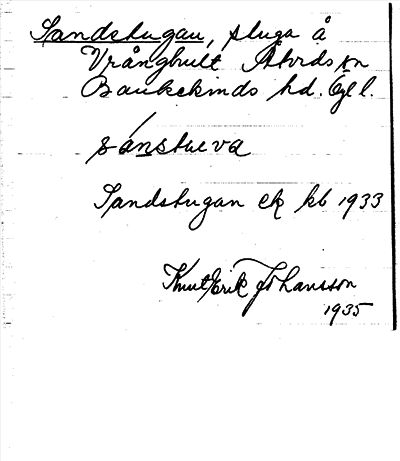 Sandstugan, stuga å
Vrånghult Åtvids sn
Bankekinds hd. Ög l.
sánstuᵫva
Sandstugan ek kb 1933
Knut Erik Johansson
1935